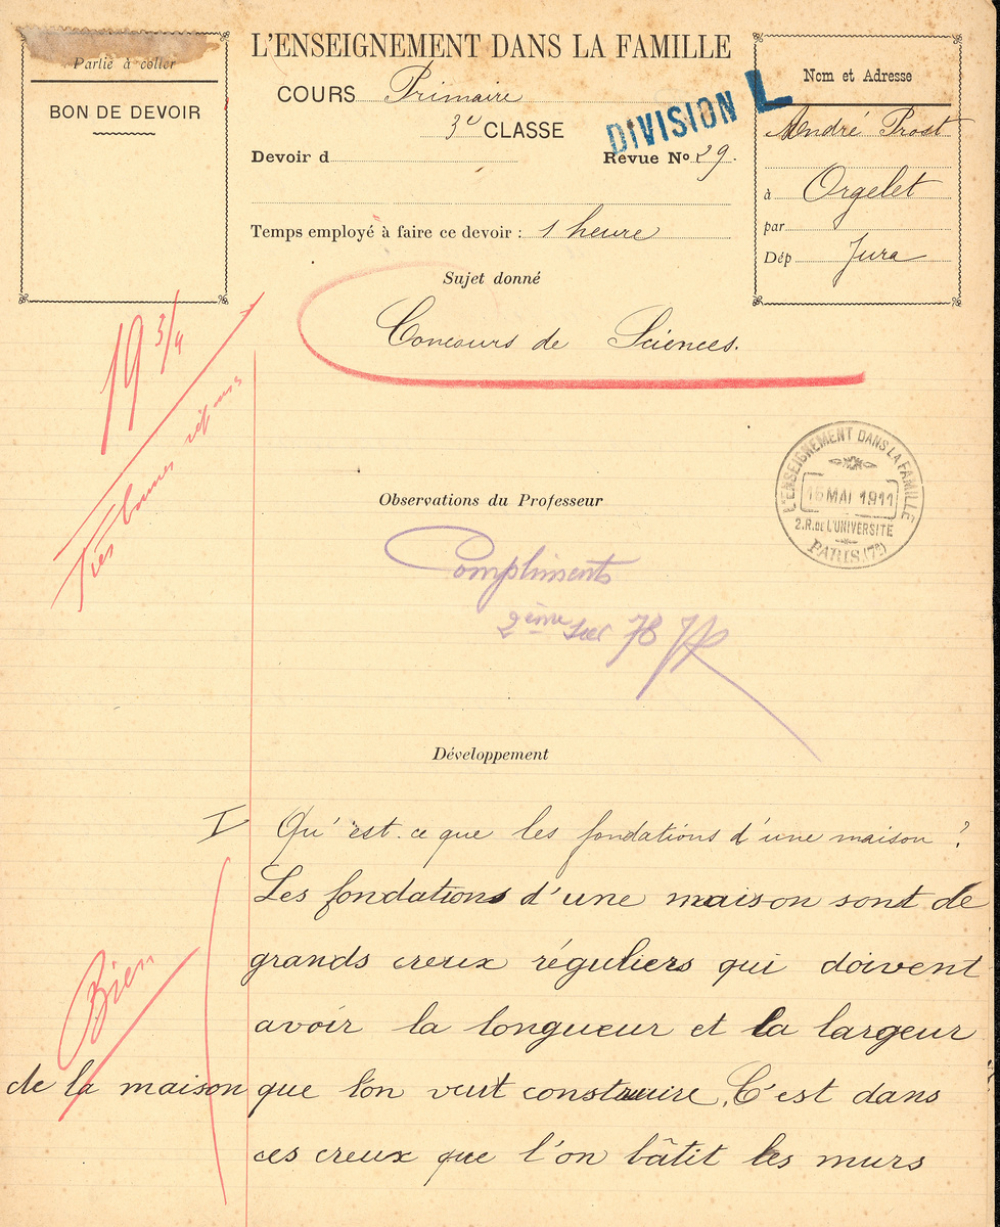 Partie à coller
BON DE DEVOIR
L'ENSEIGNEMENT DANS LA FAMILLE
COURS Primaire
3e CLASSE
DIVISION L
Devoir d
Revue No 29.
Temps employé à faire ce devoir : 1 heure
Nom et Adresse
André Prost
à Orgelet
par
Dép Jura
Sujet donné
Concours de Sciences.
19 3/4
Très bonnes
Observations du Professeur
Compliments
2ème 78
L'ENSEIGNEMENT DANS LA FAMILLE
16 MAI 1911
2.R. DE L'UNIVERSITÉ
PARIS (7e)
Développement
I Qu'est-ce que les fondations d'une maison ?
Les fondations d'une maison sont de
grands creux réguliers qui doivent
avoir la longueur et la largeur
Bien
de la maison que l'on veut construire. C'est dans
ces creux que l'on bâtit les murs